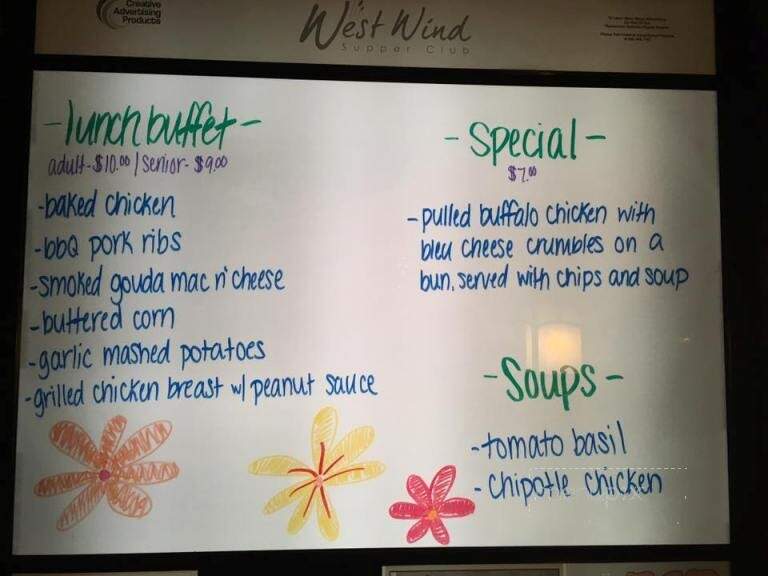 Creative
Advertising
Products
West Wind
Supper Club
-lunch buffet-
adult-$10.00 | Senior-$9.00
-baked chicken
-bbQ pork ribs
-smoked gouda mac n' cheese
-buttered corn
-garlic mashed potatoes
-grilled chicken breast w/ peanut sauce
-Special-
$7.00
-pulled buffalo chicken with
bleu cheese crumbles on a
bun, served with chips and soup
-Soups-
-tomato basil
-chipotle chicken